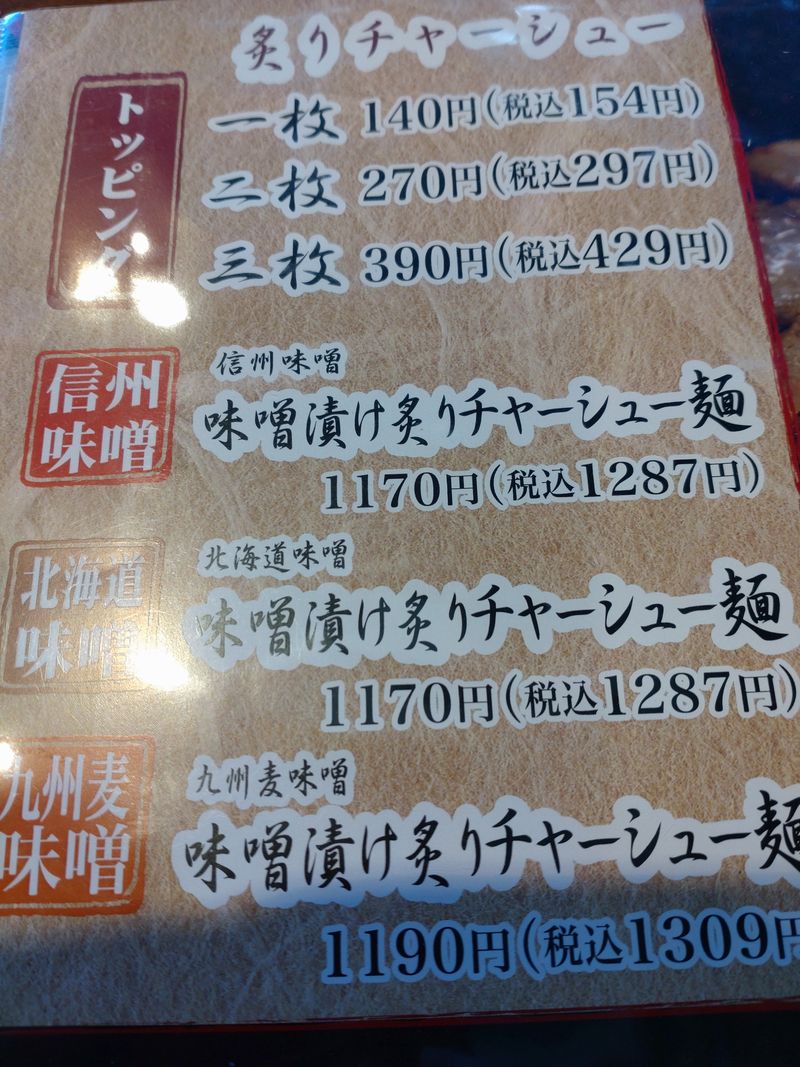 炙りチャーシュー
トッピング
一枚 140円(税込154円)
二枚 270円(税込297円)
三枚 390円(税込429円)
信州
味噌
信州味噌
味噌漬け炙りチャーシュー麺
1170円(税込1287円)
北海道
味噌
北海道味噌
味噌漬け炙りチャーシュー麺
1170円(税込1287円)
九州麦
味噌
九州麦味噌
味噌漬け炙りチャーシュー麺
1190円(税込1309円